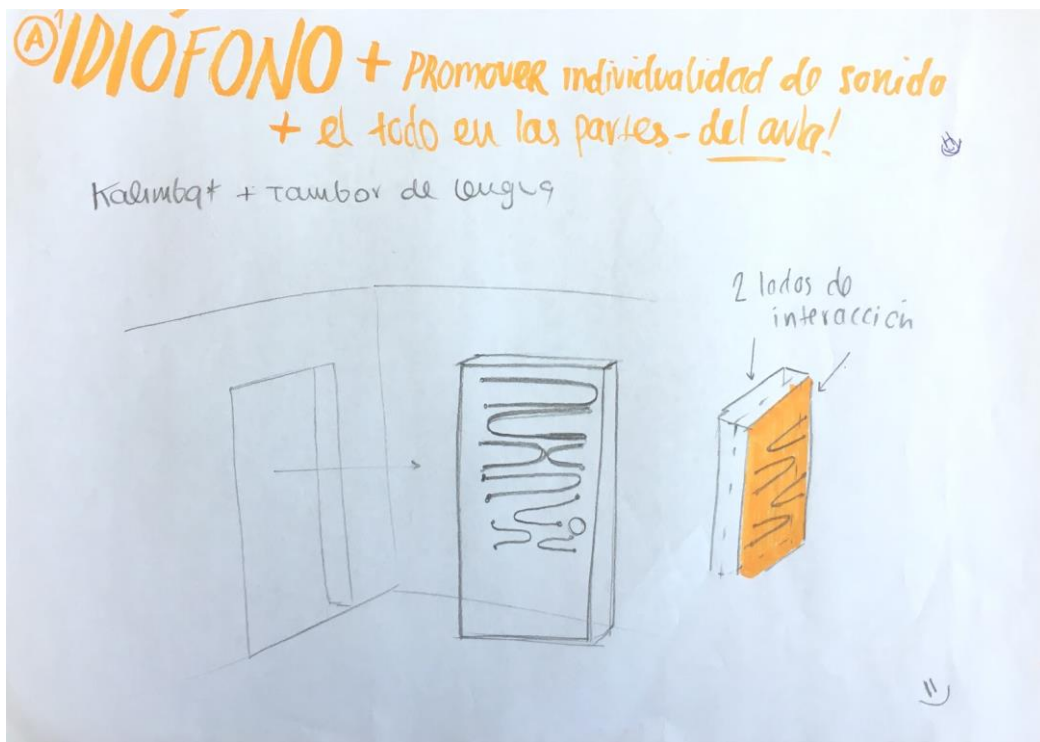 A IDIÓFONO + PROMOVER individualidad de sonido
+ el todo en las partes - del aula!
Kalimba* + Tambor de lengua
2 lados de
interacción